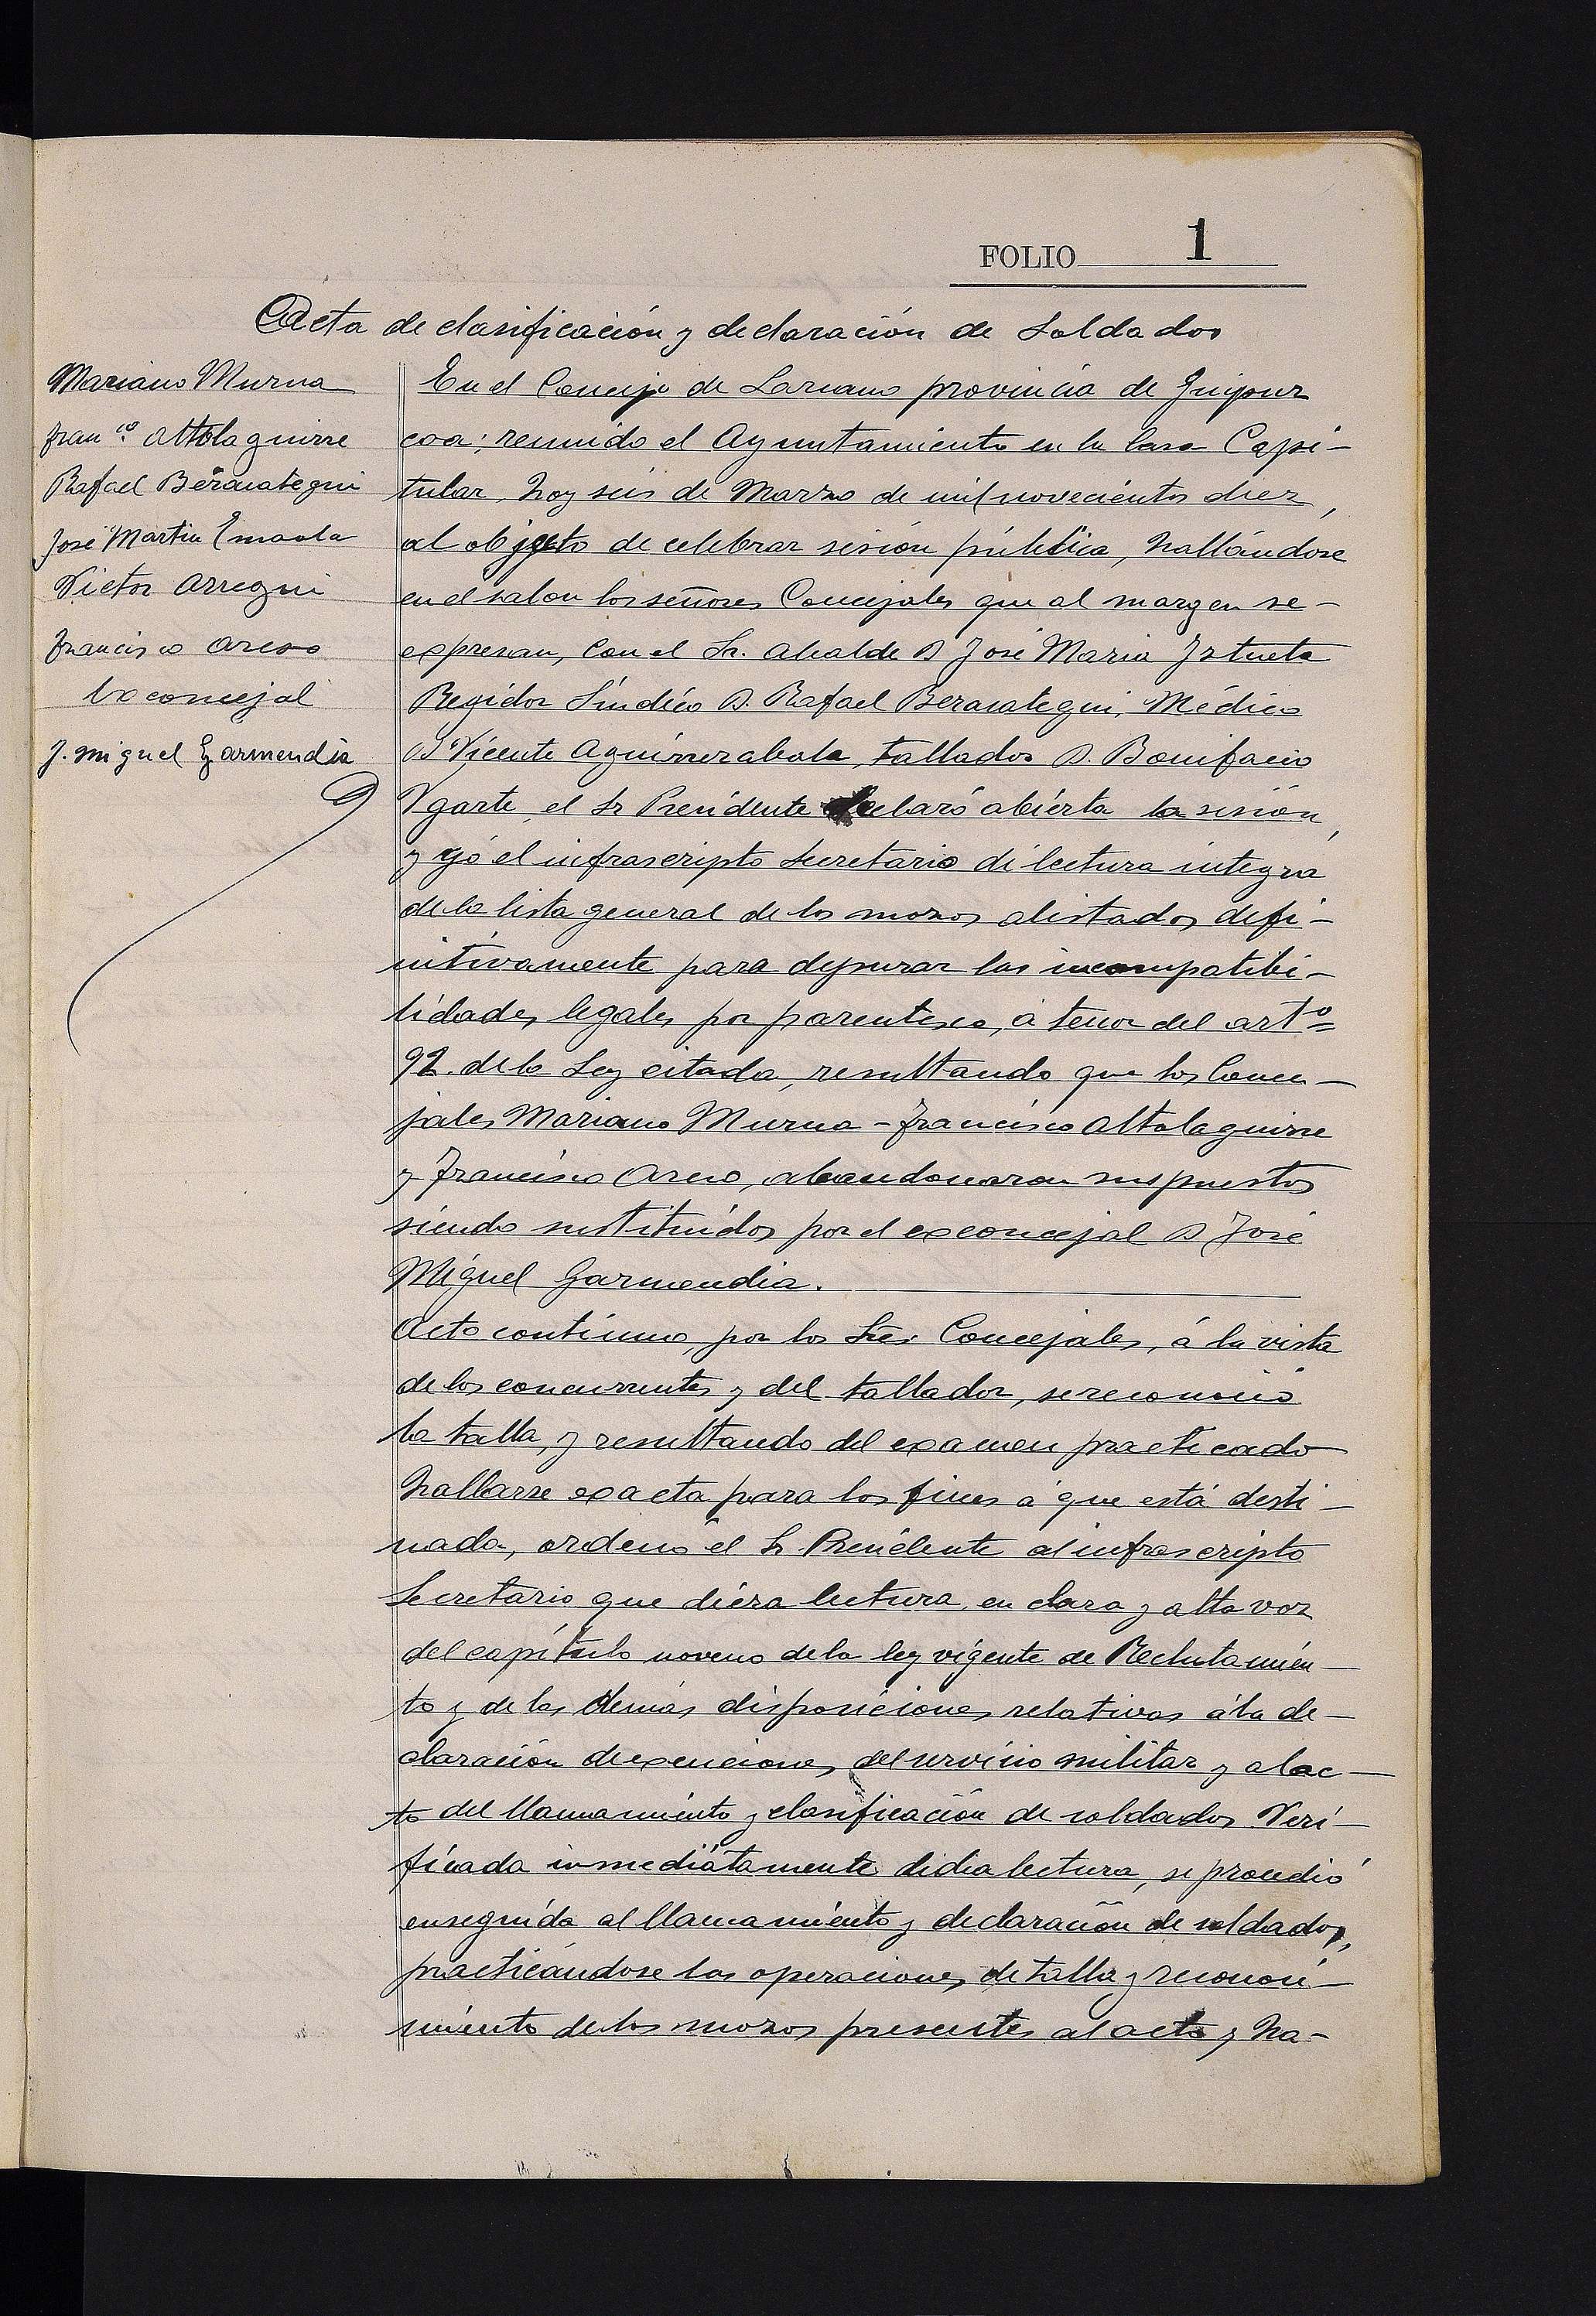 FOLIO 1
Acta de clasificación y declaración de Soldados
Mariano Murua
Fran.co Altolaguirre
Rafael Berasategui
José Martin Imaola
Victor Arregui
Francisco Areso
Ex concejal
J. Miguel Garmendia
En el Concejo de Larcano provincia de Guipuz
coa; reunido el Ayuntamiento en la Casa Capi-
tular, hoy seis de Marzo de mil novecientos diez,
al objeto de celebrar sesión pública, hallándose
en el salon los señores Concejales que al margen se-
expresan, con el Sr. Alcalde D José Maria Iztueta
Regidor Síndico D. Rafael Berasategui, Médico
D Vicente Aguirrezabala, tallador D. Bonifacio
Ygarte, el Sr Presidente declaró abierta la sesión,
y yó el infrascripto Secretario di lectura integra
de la lista general de los mozos alistados defi-
nitivamente para depurar las incompatibi-
lidades legales por parentesco, á tenor del arto
92 de la Ley citada, resultando que los Conce-
jales Mariano Murua - Francisco Altolaguirre
y Francisco Areso, abandonaron sus puestos
siendo sustituidos por el exconcejal D José
Miguel Garmendia.
Acto continuo, por los Sres Concejales, á la vista
de los concurrentes y del tallador, se reconoció
la talla, y resultando del examen practicado
hallarse exacta para los fines á que está desti-
nada, ordenó el Sr. Presidente al infrascripto
Secretario que diera lectura, en clara y alta voz
del capítulo noveno de la ley vigente de Reclutamien-
to y de las demás disposiciones relativas á la de-
claración de exenciones, del servicio militar y al ac-
to del llamamiento y clasificación de soldados. Veri-
ficada inmediatamente dicha lectura, se procedió
enseguida al llamamiento y declaración de soldados,
practicándose las operaciones de talla y reconoci-
miento de los mozos presentes al acto y ha-